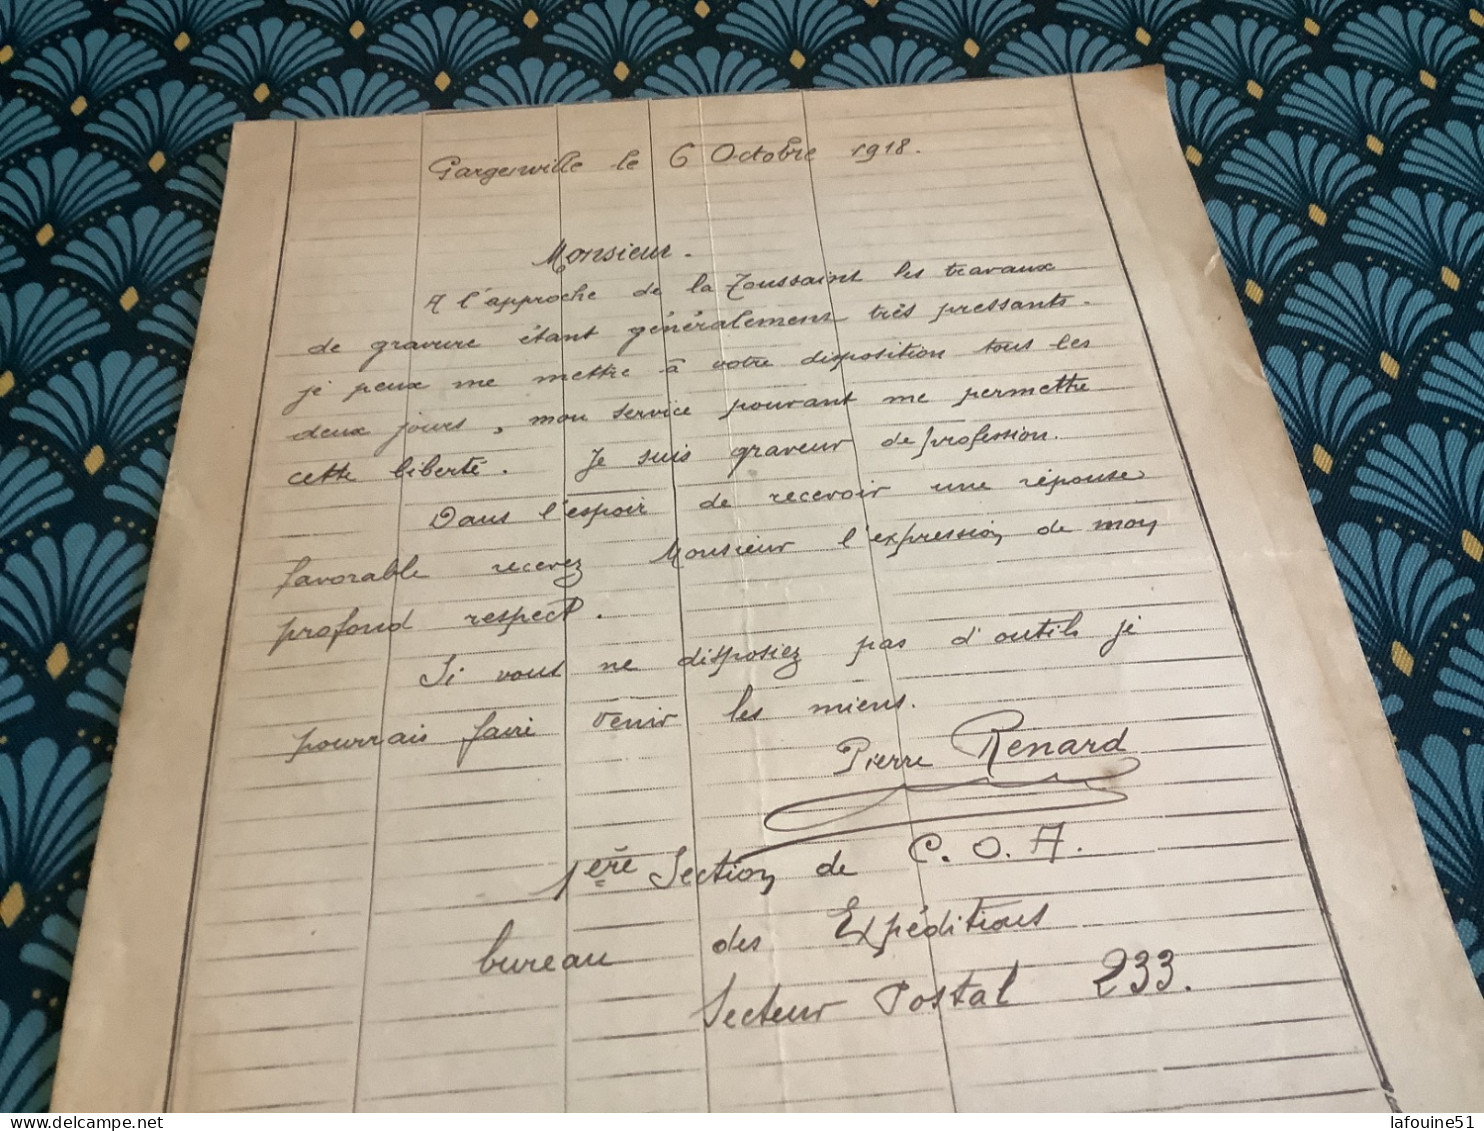 Gargenville le 6 Octobre 1918.
Monsieur.
A l'approche de la Toussaint les travaux
de gravure étant généralement très pressants.
je peux me mettre à votre disposition tous les
deux jours, mon service pouvant me permettre
cette liberté. Je suis graveur de profession.
Dans l'espoir de recevoir une réponse
favorable recevez Monsieur l'expression de mon
profond respect.
Si vous ne disposiez pas d'outils je
pourrais faire venir les miens.
Pierre Renard
1ère Section de C.O.A.
bureau des Expéditions
Secteur Postal 233.
lafouine51